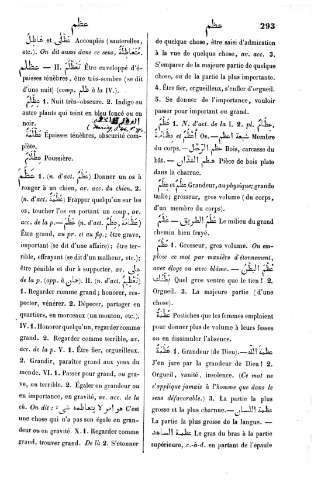 عظم
عظم
293
عُظَّالٌ et عَاظِلٌ Accouplés (sauterelles,
etc.). On dit aussi dans ce sens, مُتَعَاظِلَةٌ.
عظلم — II. تَعَظْلَمَ Être enveloppé d'é-
paisses ténèbres, être très-sombre (se dit
d'une nuit) (comp. ظلم à la IV.).
عِظْلِمٌ 1. Nuit très-obscure. 2. Indigo ou
autre plants qui teint en bleu foncé ou en
noir.
عَظْلَمَةٌ Épaisses ténèbres, obscurité com-
plète.
عِظْلَامٌ Poussière.
عظم o. 1. (n. d'act. عَظْمٌ) Donner un os à
ronger à un chien, av. acc. du chien. 2.
(n. d'act. عَظْمَةٌ) Frapper quelqu'un sur les
os, toucher l'os en portant un coup, av.
acc. de la p. — عَظُمَ (n. d'act. عِظَمٌ, عَظَامَةٌ)
Être grand, au pr. et au fig.; être grave,
important (se dit d'une affaire); être ter-
rible, effrayant (se dit d'un malheur, etc.);
être pénible et dur à supporter, av. على
de la p. (opp. à هان). II. (n. d'act. تَعْظِيمٌ)
1. Regarder comme grand; honorer, res-
pecter, vénérer. 2. Dépecer, partager en
quartiers, en morceaux (un mouton, etc.).
IV. 1. Honorer quelqu'un, regarder comme
grand. 2. Regarder comme terrible, av.
acc. de la p. V. 1. Être fier, orgueilleux.
2. Grandir, paraître grand aux yeux du
monde. VI. 1. Passer pour grand, ou gra-
ve, ou terrible. 2. Égaler en grandeur ou
en importance, en gravité, av. acc. de la
ch. On dit: هو امر لا يتعاظمه شيء C'est
une chose qui n'a pas son égale en gran-
deur ou en gravité. X. 1. Regarder comme
grand, trouver grand. De là 2. S'étonner
de quelque chose, être saisi d'admiration
à la vue de quelque chose, av. acc. 3.
S'emparer de la majeure partie de quelque
chose, ou de la partie la plus importante.
4. Être fier, orgueilleux, s'enfler d'orgueil.
5. Se donner de l'importance, vouloir
passer pour important ou grand.
عَظْمٌ 1. N. d'act. de la I. 2. pl. أَعْظُمٌ,
عِظَامٌ et عِظَامَةٌ Os. — Membre
du corps. — عظم الرَّحْل Bois, carcasse du
bât. — عظم الفَدَّان Pièce de bois plate
dans la charrue.
عِظَمٌ et عُظْمٌ Grandeur, au physique; grande
taille; grosseur, gros volume (du corps,
d'un membre du corps).
عَظَمُ الطَّرِيق — عَظَمٌ Le milieu du grand
chemin bien frayé.
عُظْمٌ 1. Grosseur, gros volume. On em-
ploie ce mot par manière d'étonnement,
avec éloge ou avec blâme. — عُظْمَ البَطْنُ
بَطْنُكَ Quel gros ventre que le tien! 2.
Orgueil. 3. La majeure partie (d'une
chose).
عُظْمَةٌ Postiches que les femmes emploient
pour donner plus de volume à leurs fesses
ou en dissimuler l'absence.
عَظَمَةٌ 1. Grandeur (de Dieu). — عَظَمَةَ اللهِ
J'en jure par la grandeur de Dieu! 2.
Orgueil, vanité, insolence. (Ce mot ne
s'applique jamais à l'homme que dans le
sens défavorable.) 3. La partie la plus
grosse et la plus charnue. — عَظَمَة اللِّسَان
La partie la plus grosse de la langue. —
عظمة السَّاعِد Le gras du bras à la partie
supérieure, c.-à-d. en partant de l'épaule